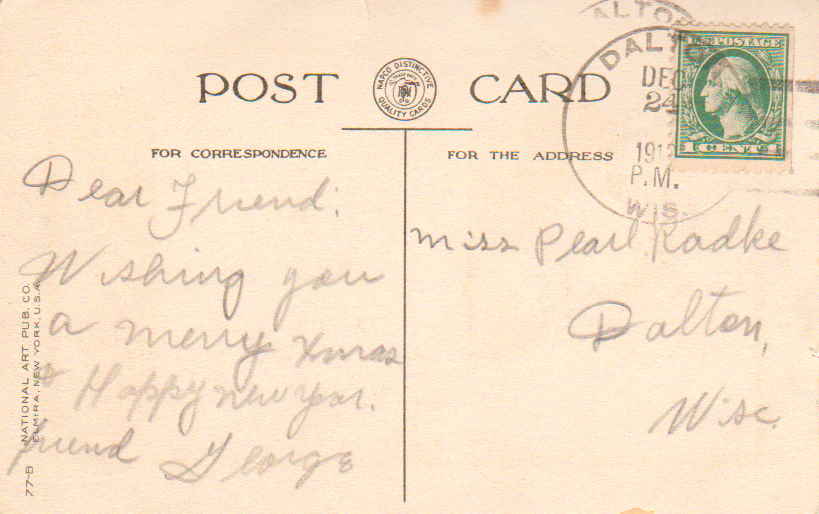 POST CARD
NAPCO DISTINCTIVE
QUALITY CARDS
FOR CORRESPONDENCE
FOR THE ADDRESS
Dear Friend:
Wishing you
a merry Xmas
& Happy new year.
friend George
Miss Pearl Radke
Dalton,
Wisc.
DALTON
DEC
24
191
P.M.
WIS.
ALTO
U.S. POSTAGE
1 CENT 1
77-B NATIONAL ART PUB. CO.
ELMIRA, NEW YORK, U.S.A.